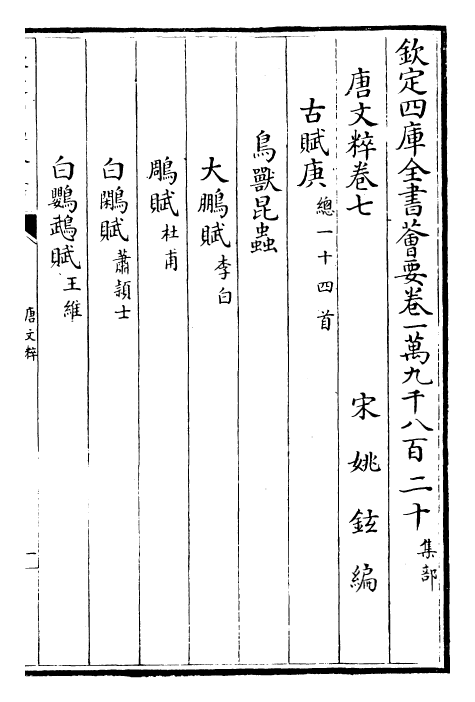 欽定四庫全書薈要卷一萬九千八百二十集部
唐文粹卷七
宋姚鉉編
古賦庚總一十四首
鳥獸昆蟲
大鵬賦李白
鵰賦杜甫
白鷴賦蕭頴士
白鸚鵡賦王維
唐文粹
一